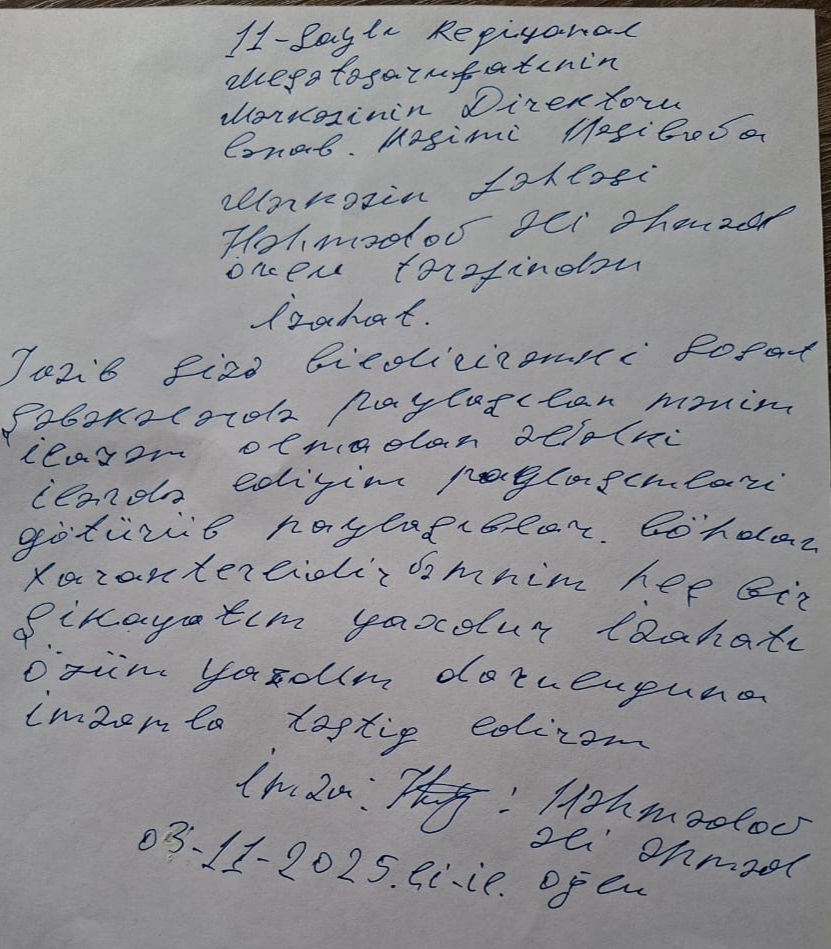 11-Saylı Regiyonal
Meşətəsərrufatının
Mərkəzinin Direktoru
Cənab. Həşimi Həşibrə
Mərkəzin Fəhləsi
Məhmədov Əli Əhməd
öneu tərəfindən
İzahat.
Yazib Sizə bildirirəmki Sosal
Şəbəkələrdə paylaşılan mənim
ilazəm olmadan əvəlki
ilərdə ediyim paylaşımlari
götürüb paylaşıblar. böhdan
xarakterlidir mnim heç bir
Şikayətım yaxdur İzahatı
özüm yazdım dozuluguna
imzamla təstig edirəm
İmza: : Məhmədov
Əli Əhməd
03-11-2025.ci-il. oğlu